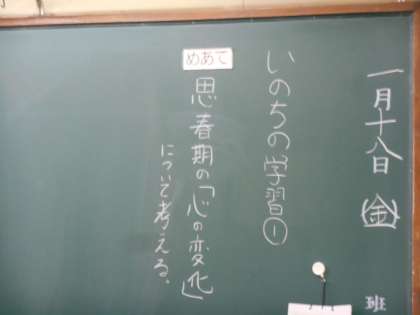 一月十八日(金)
いのちの学習①
めあて
思春期の「心の変化」
について考える。
班